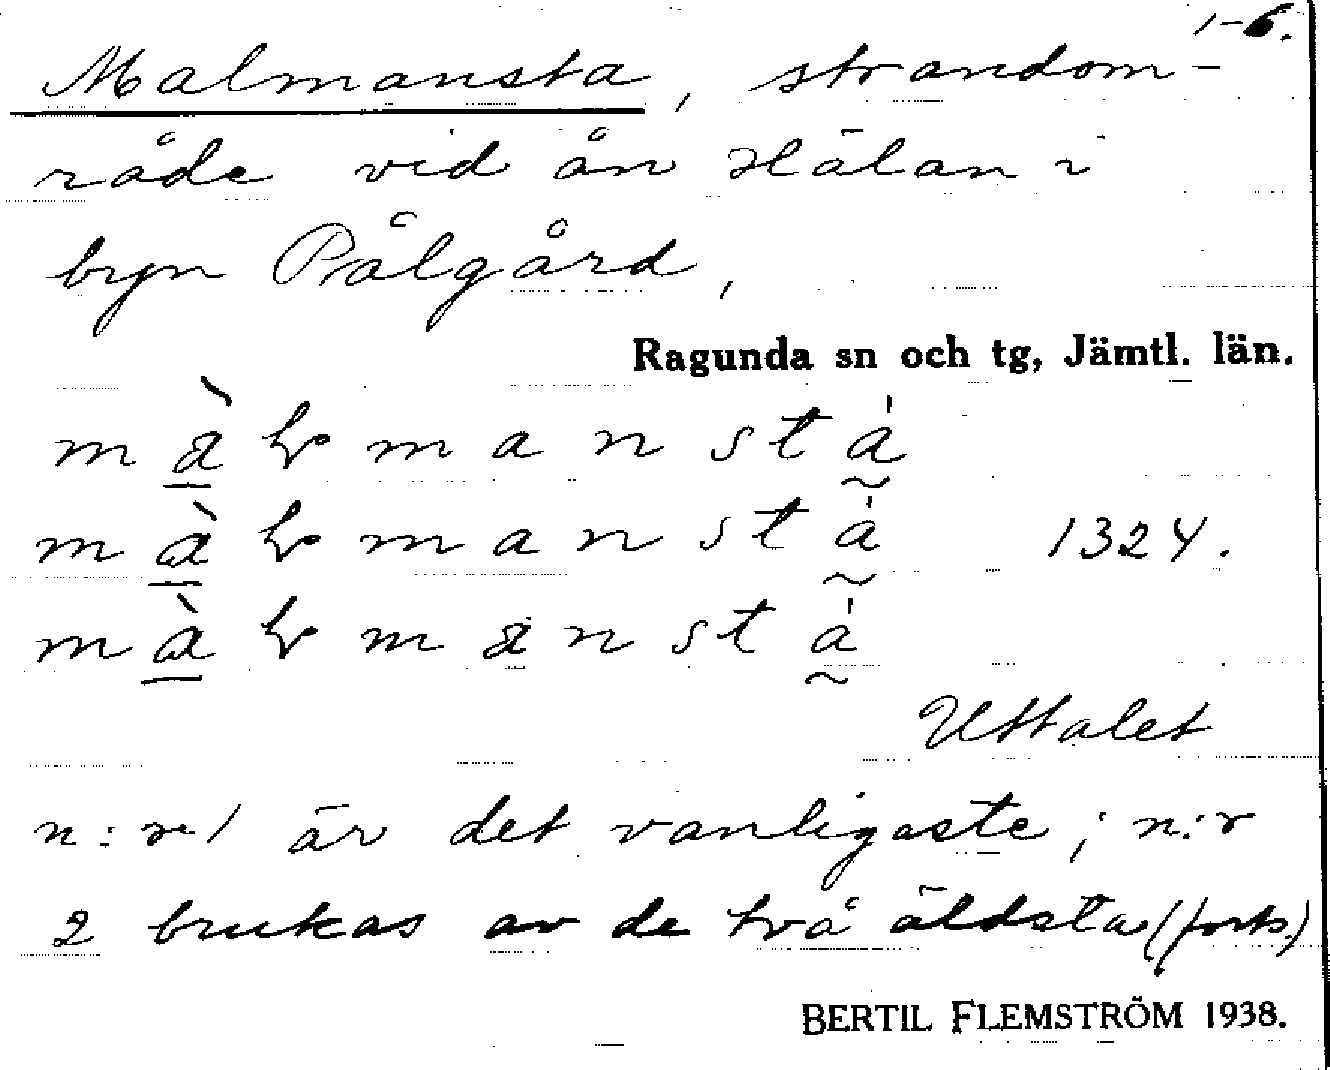 1-6.
Malmansta, strandom-
råde vid ån Hälan i
byn Pålgård,
Ragunda sn och tg, Jämtl. län.
1324.
Uttalet
n:r 1 är det vanligaste; n:r
2 brukas av de två äldsta (forts.)
BERTIL FLEMSTRÖM 1938.